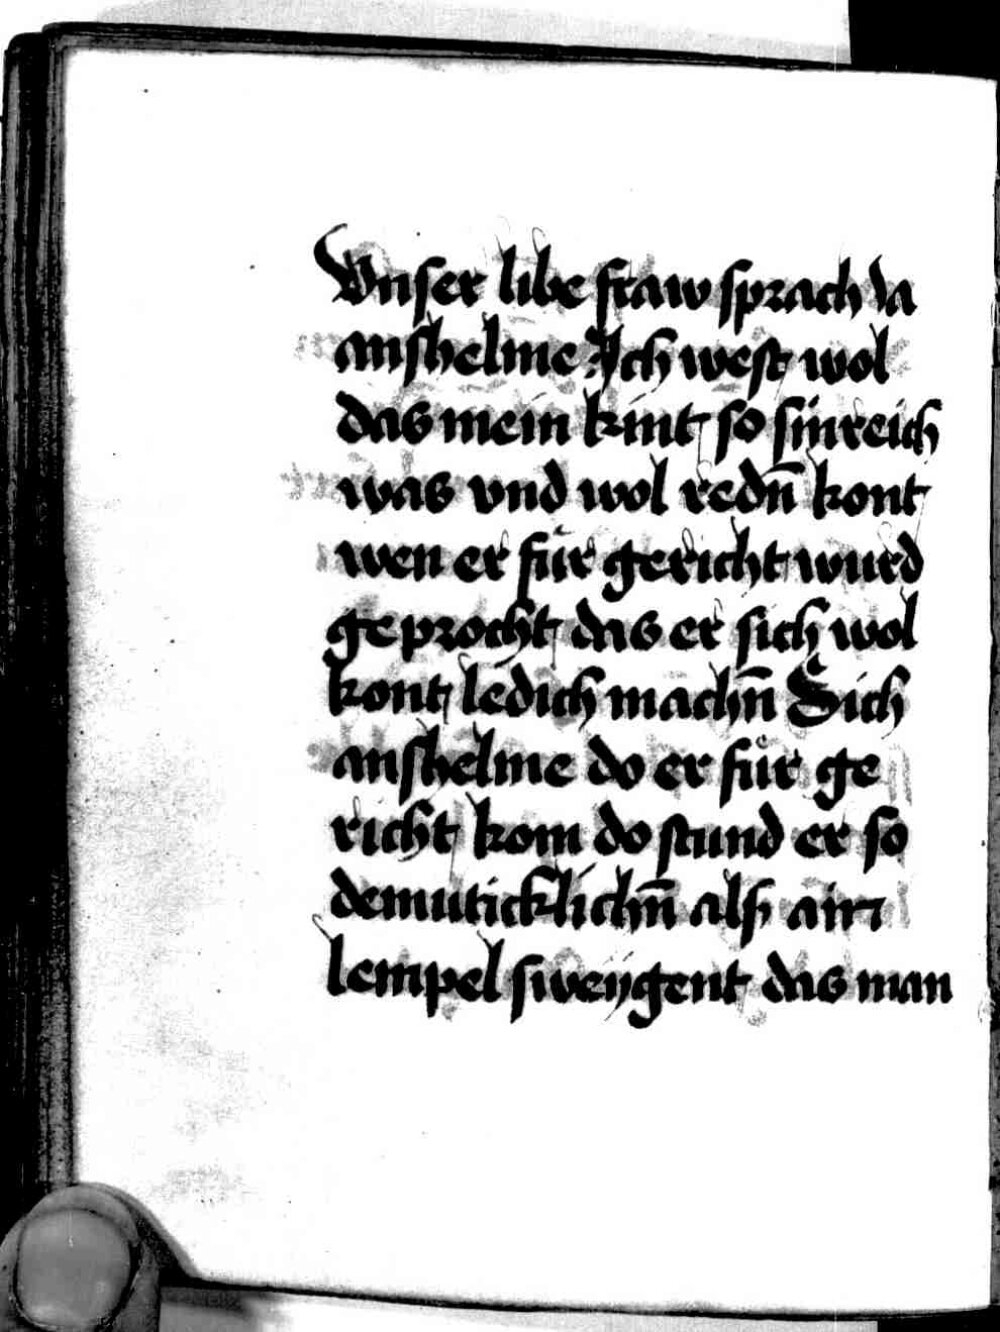 Vnser libe fraw sprach da
anshelme Ich west wol
das mein kint so sinreich
was vnd wol redn̄ kont
wen er für gericht wurd
geprocht das er sich wol
kont ledich machn̄ Sich
anshelme do er für ge
richt kom do stund er so
demuticklichn̄ als ain
lempel sweygent das man